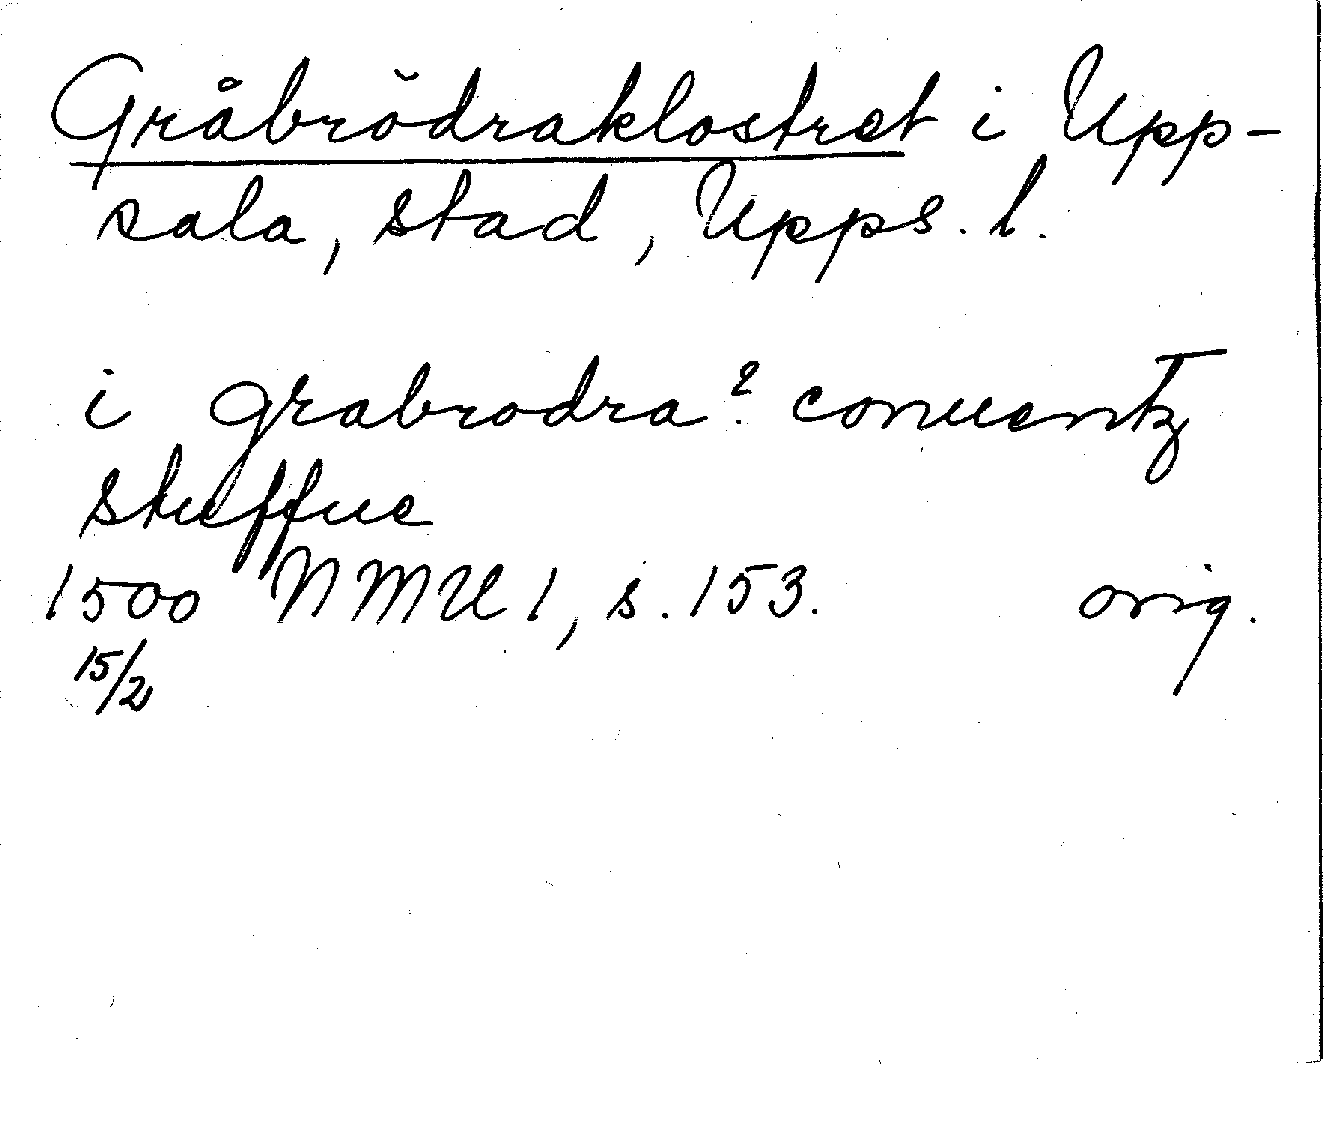 Gråbrödraklostret i Upp-
sala, stad, Upps. l.
i grabrodra? conuentz
stuffue
1500 NMU 1, s. 153. orig.
15/2